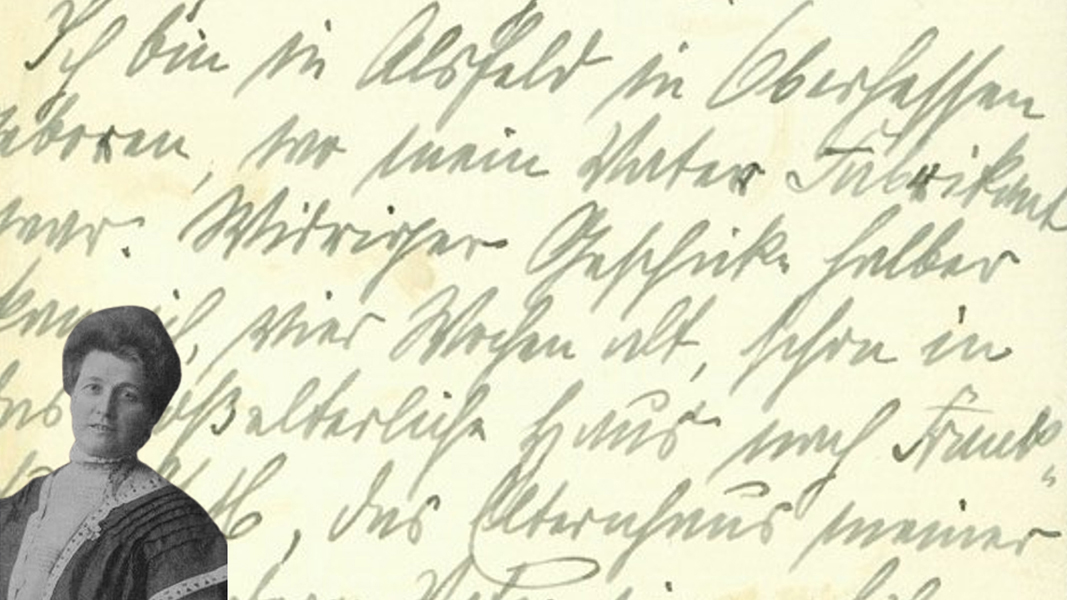 Ich bin in Alsfeld in Oberhessen
eboren, wo mein Vater Fabrikant
war. Widriger Geschicke halber
kam ich, vier Wochen alt, schon in
das oßelterliche Haus nach Frank-
, das Elternhaus meiner